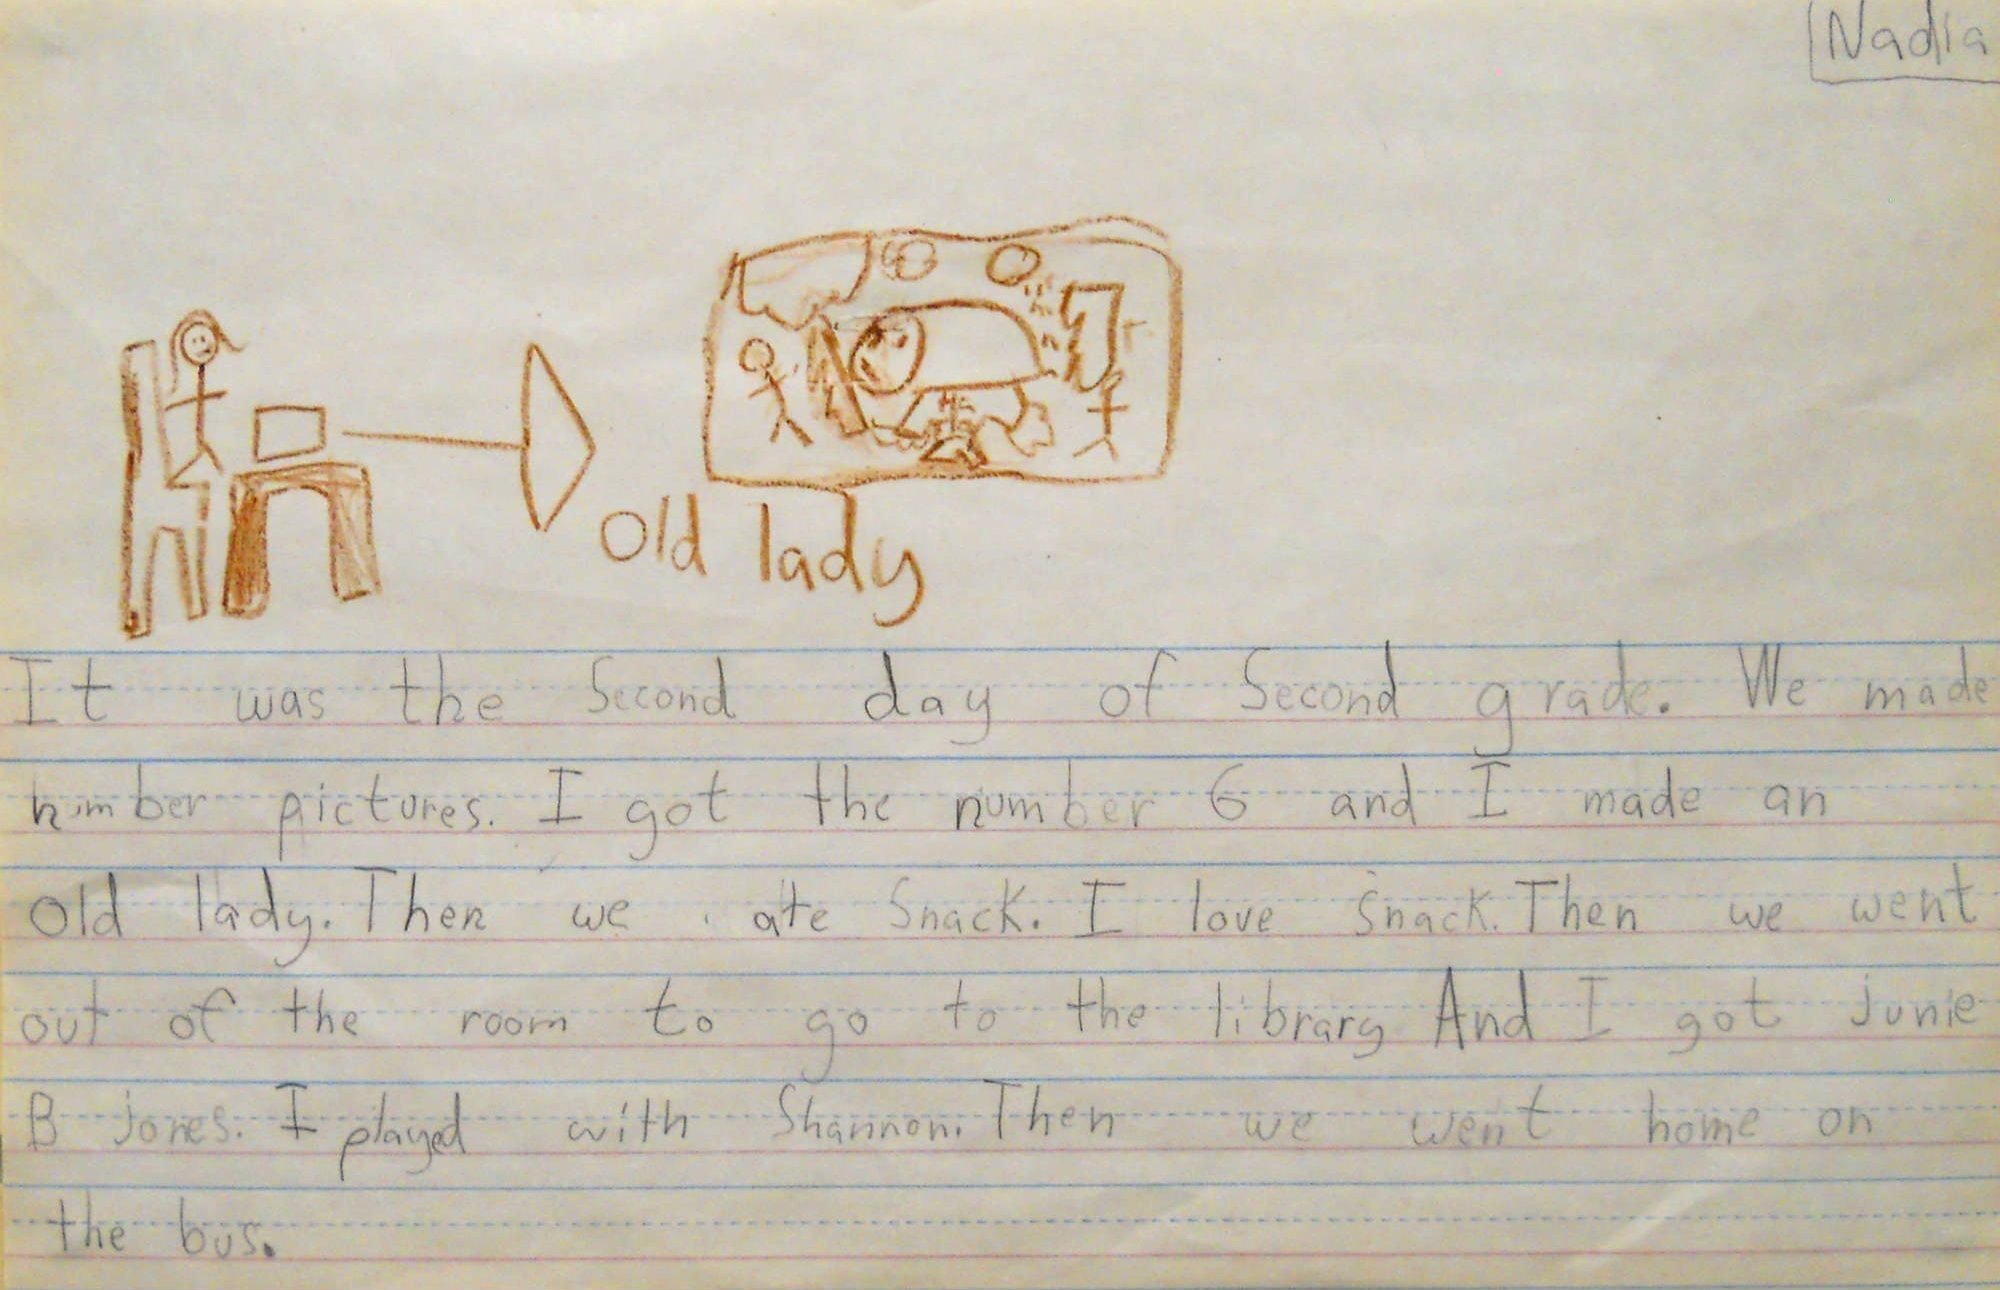 Nadia
Old lady
It was the Second day of Second grade. We made
number pictures. I got the number 6 and I made an
Old lady. Then we ate Snack. I love Snack. Then we went
out of the room to go to the library And I got junie
B jones. I played with Shannon. Then we went home on
the bus.